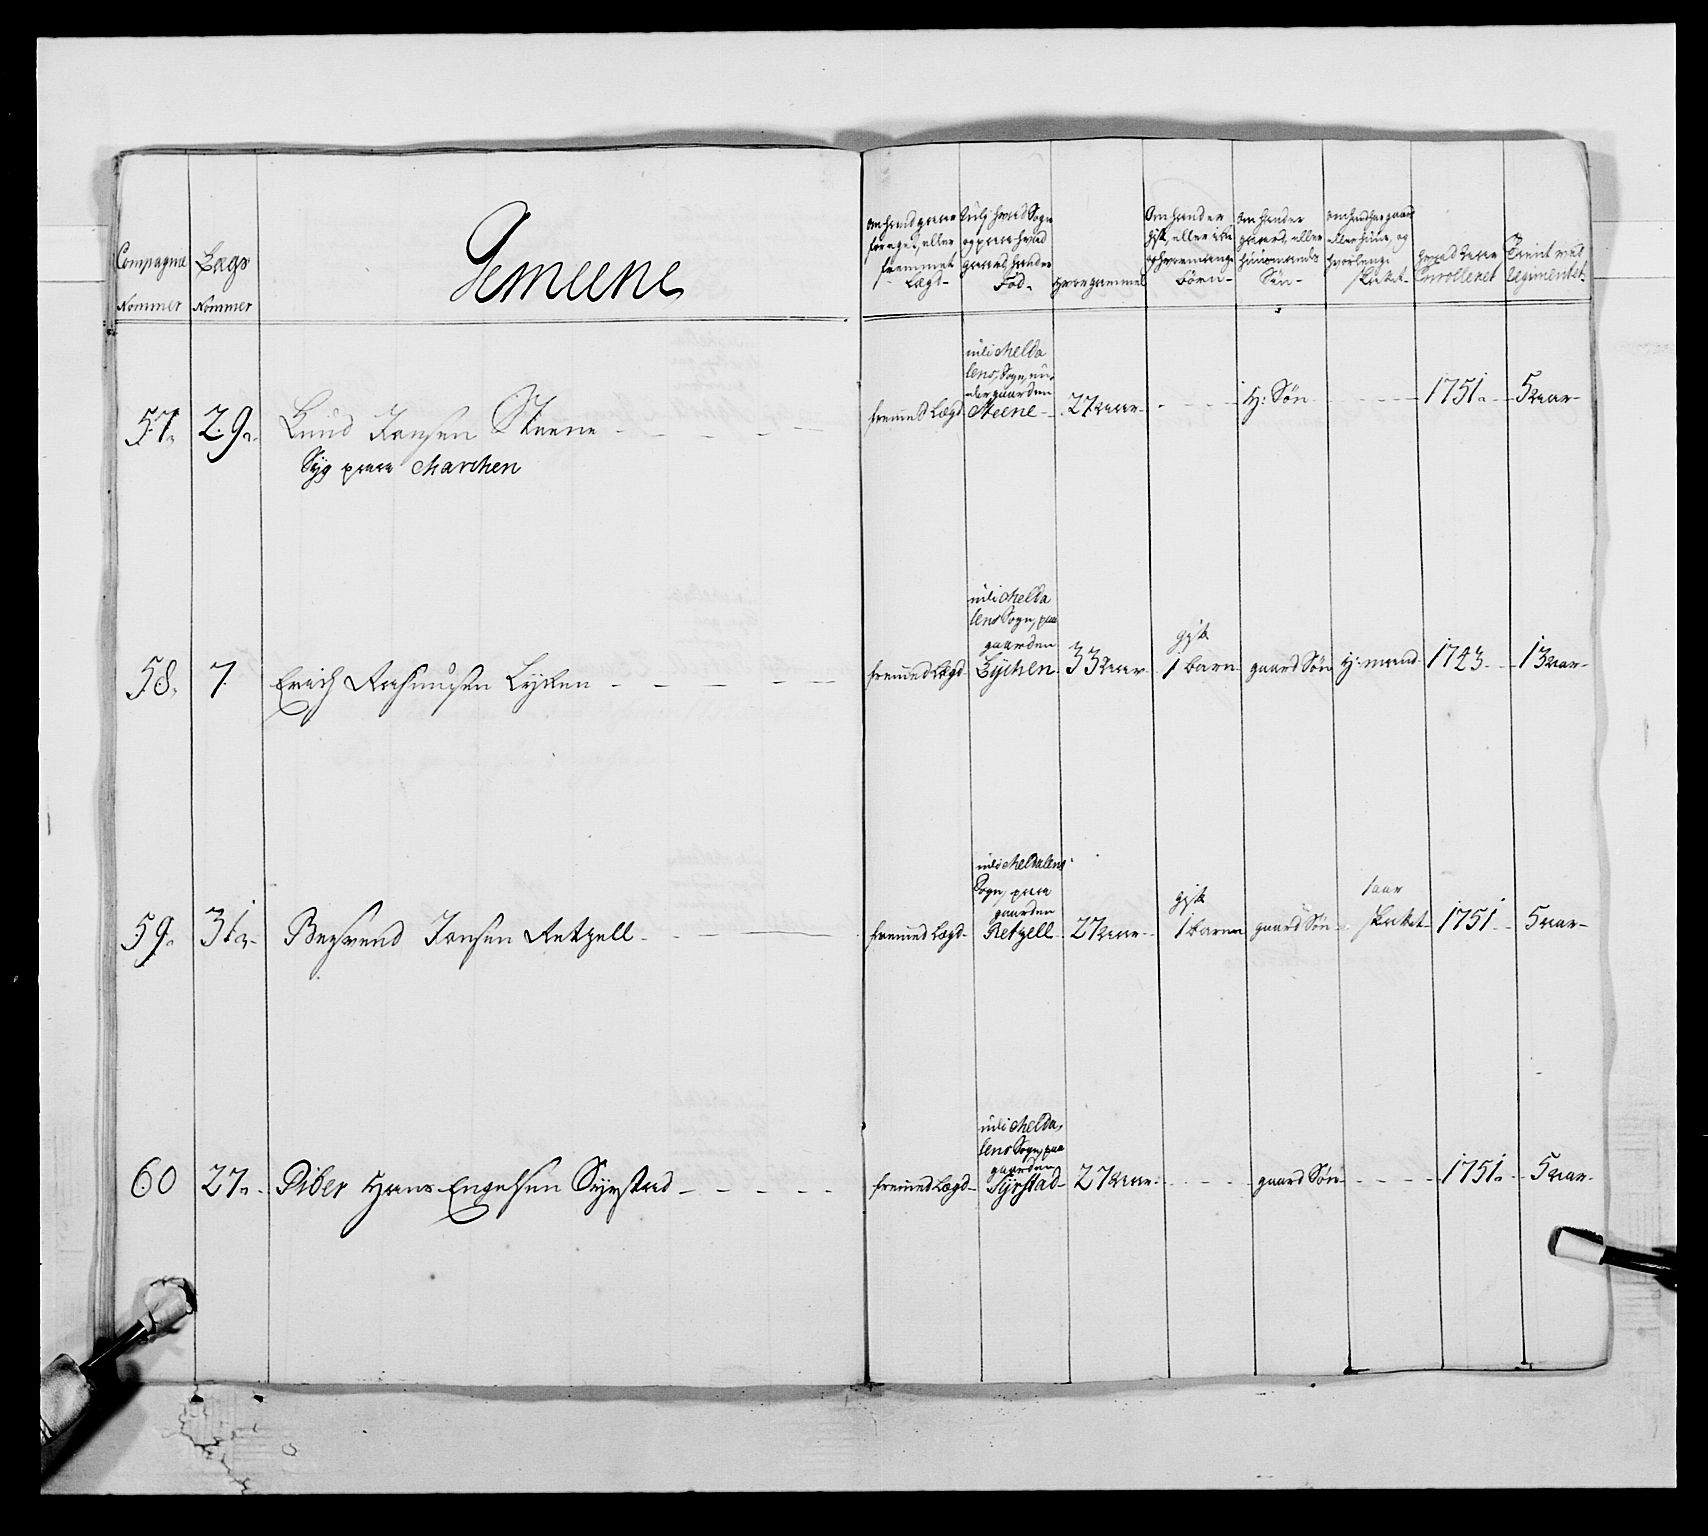 Compagnie
Nommer
Lægs
Nommer
Gemeene
om hand gaar
for eget, eller
fremmet
Lægt
udj hvad Sogn
og paa hvad
gaard hand er
Fød
hvor gammel
om hand er
gift, eller ikke
og hvor mange
Børn
om hand er
gaard, eller
huusmands
Søn
om hand har gaard
eller huus, og
hvorlenge
Skatet
hvad Aar
Enrolleret
Tient ved
Regimentet
57. 29. Lund Jonsen Steene
Syg paa Marchen
fremed Lægd
udi Melda
lens Sogn, un
der gaarden
Steene
27 aar
H: Søn
1751.
5 aar
58. 7 Erich Rasmusen Lyken
fremed Lægd
udi Melda
lens Sogn, paa
gaarden
Lychen
33 aar
gift
1 barn
gaard Søn
H: mand
1743.
13 aar
59. 31. Jonsen Retzell
fremed Lægd
udi Meldalens
Sogn, paa
gaarden
Retzell
27 aar
gift
1 barn
gaard Søn
1 aar
Skatet
1751
5 aar
60 27. Piber Hans Engelsen Syrstad
fremed Lægd
udi Melda
lens Sogn, paa
gaarden
Syrstad
27 aar
gaard Søn
1751.
5 aar